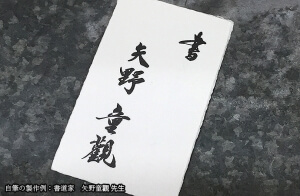 書
矢野童觀
自筆の製作例：書道家　矢野童觀 先生